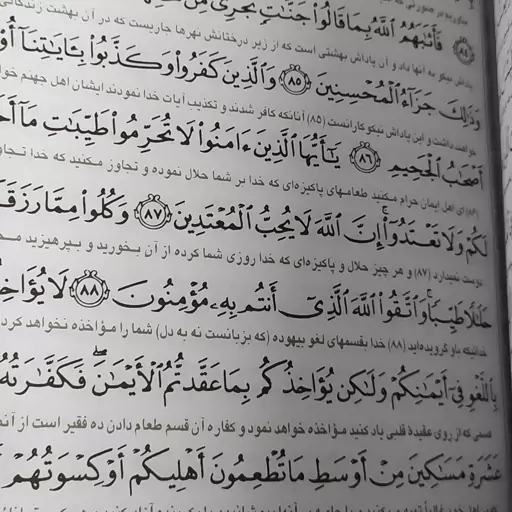 فَأَثَٰبَهُمُ ٱللَّهُ بِمَا قَالُوا۟ جَنَّٰتٍ تَجْرِى مِن
پاداش نیکو به آنها داد و آن پاداش بهشتی است که از زیر درختانش نهرها جاریست که در آن بهشت زندگانی
وَذَٰلِكَ جَزَآءُ ٱلْمُحْسِنِينَ ﴿٨٥﴾ وَٱلَّذِينَ كَفَرُوا۟ وَكَذَّبُوا۟ بِـَٔايَٰتِنَآ
خواهند داشت و این پاداش نیکوکارانست (۸۵) آنانکه کافر شدند و تکذیب آیات خدا نمودند ایشان اهل جهنم
أَصْحَٰبُ ٱلْجَحِيمِ ﴿٨٦﴾ يَٰٓأَيُّهَا ٱلَّذِينَ ءَامَنُوا۟ لَا تُحَرِّمُوا۟ طَيِّبَٰتِ مَآ
(۸۶) ای اهل ایمان حرام مکنید طعامهای پاکیزه‌ای که خدا بر شما حلال نموده و تجاوز مکنید که خدا
لَكُمْ وَلَا تَعْتَدُوٓا۟ ۚ إِنَّ ٱللَّهَ لَا يُحِبُّ ٱلْمُعْتَدِينَ ﴿٨٧﴾ وَكُلُوا۟ مِمَّا
دوست نمیدارد (۸۷) و هر چیز حلال و پاکیزه‌ای که خدا روزی شما کرده از آن بخورید و بپرهیزید
حَلَٰلًا طَيِّبًا ۚ وَٱتَّقُوا۟ ٱللَّهَ ٱلَّذِىٓ أَنتُم بِهِۦ مُؤْمِنُونَ ﴿٨٨﴾ لَا
خدائیکه باو گرویده‌اید (۸۸) خدا بقسمهای لغو بیهوده (که بزبانست نه به دل) شما را مؤاخذه نخواهد کرد
بِٱللَّغْوِ فِىٓ أَيْمَٰنِكُمْ وَلَٰكِن يُؤَاخِذُكُم بِمَا عَقَّدتُّمُ ٱلْأَيْمَٰنَ ۖ فَكَفَّٰرَتُهُۥٓ
قسمی که از روی عقیدۀ قلبی یاد کنید مؤاخذه خواهد نمود و کفاره آن قسم طعام دادن ده فقیر است از
عَشَرَةِ مَسَٰكِينَ مِنْ أَوْسَطِ مَا تُطْعِمُونَ أَهْلِيكُمْ أَوْ كِسْوَتُهُمْ